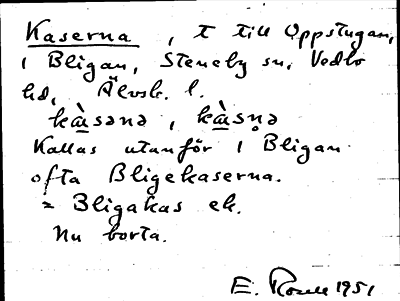 Kaserna, t till Oppstugan,
i Bligan, Steneby sn, Vedbo
hd, Älvsb. l.
kὰsənə, kὰsn̥ə
Kallas utanför i Bligan
ofta Bligekaserna.
= Bligakas ek.
Nu borta.
E. Rosell 1951